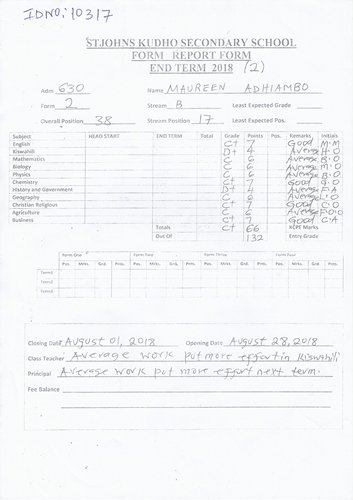 IDNO: 10317
STJOHNS KUDHO SECONDARY SCHOOL
FORM REPORT FORM
END TERM 2018 (2)
Adm 630 Name MAUREEN ADHIAMBO
Form 2 Stream B Least Expected Grade
Overall Position 38 Stream Position 17 Least Expected Pos.
Subject HEAD START END TERM Total Grade Points Pos. Remarks Initials
English C+ 7 Good M.M
Kiswahili D+ 4 Average H.O
Mathematics C 6 Average B.O
Biology C 6 Average M.O
Physics C 6 Average B.O
Chemistry C+ 7 Good G.O
History and Government D+ 4 Average F.A
Geography C 6 Average L.O
Christian Religious C+ 7 Good C.O
Agriculture C 6 Average F.O.O
Business C+ 7 Good C.A
Totals C+ 66 KCPE Marks
Out Of 132 Entry Grade
Form One Form Two Form Three Form Four
Pos. Mrks. Grd. Pos. Mrks. Grd. Pos. Mrks. Grd. Pos. Mrks. Grd.
Term1
Term2
Term3
Closing Date AUGUST 01, 2018 Opening Date AUGUST 28, 2018
Class Teacher Average work put more effort in Kiswahili
Principal Average work put more effort next term.
Fee Balance